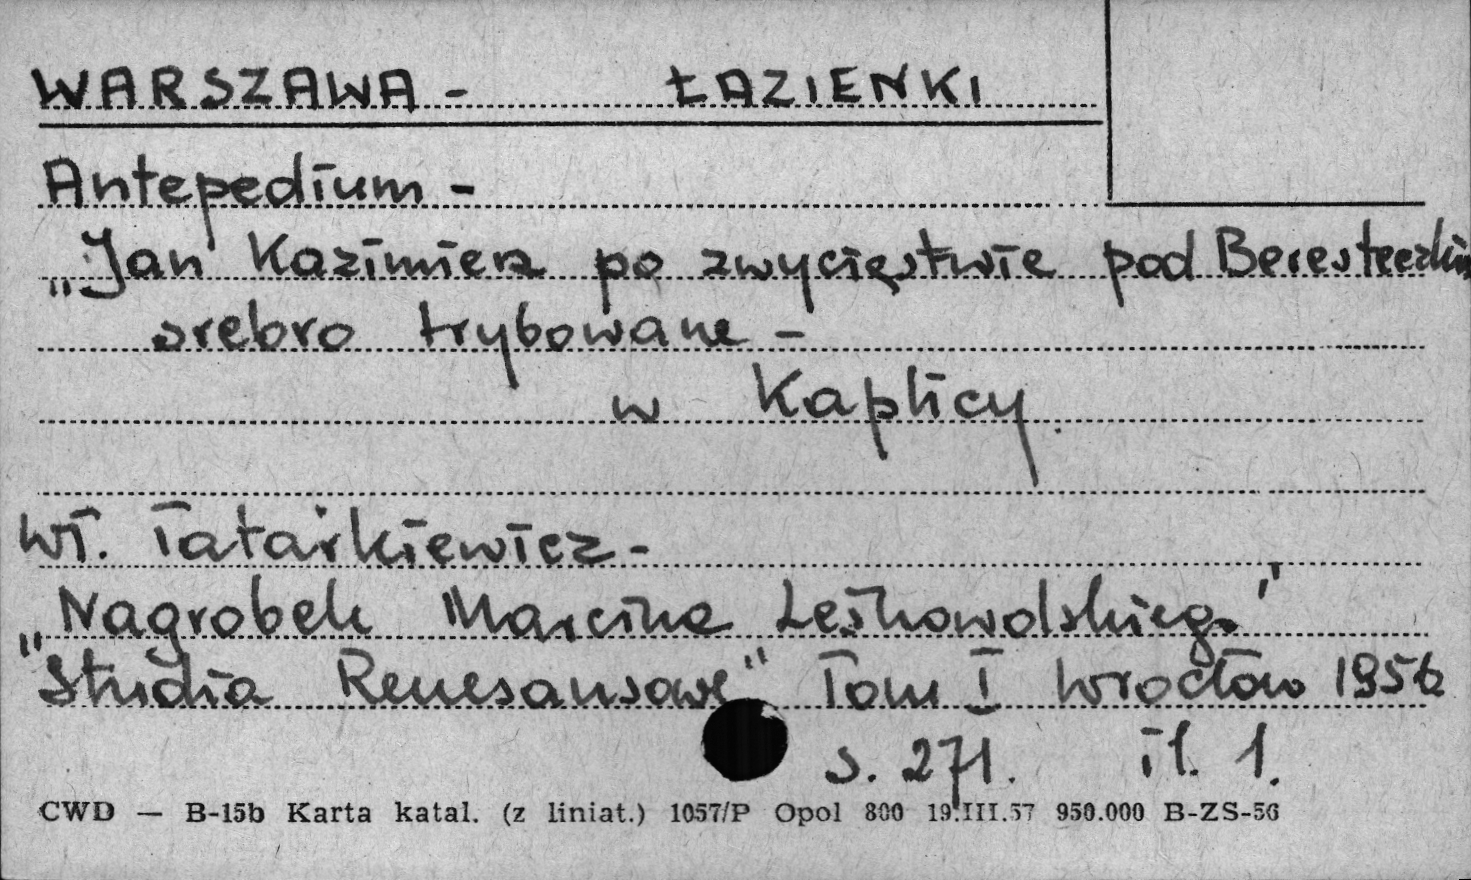 WARSZAWA - ŁAZIENKI
Antepedium -
„Jan Kazimierz po zwycięstwie pod Beresteczkim
srebro trybowane -
w Kaplicy.
Wł. Tatarkiewicz -
„Nagrobek Marcina Leśnowolskiego"
"Studia Renesansowe" Tom I Wrocław 1956
s. 271. il. 1.
CWD — B-15b Karta katal. (z liniat.) 1057/P Opol 800 19.III.57 950.000 B-ZS-56